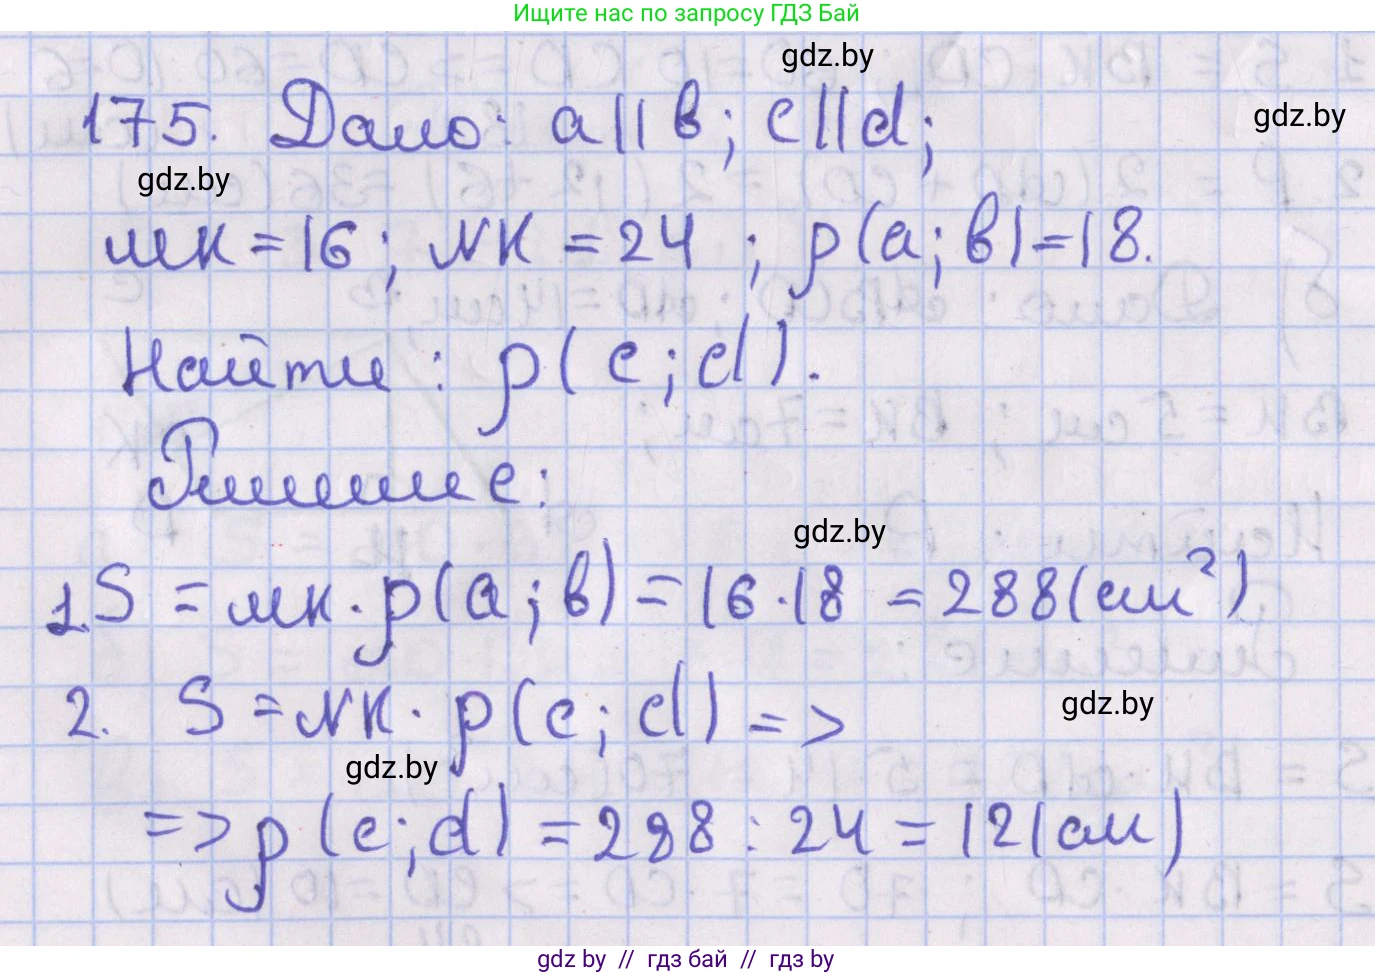 Ищите нас по запросу ГДЗ Бай
gdz.by
175. Дано: a || b; c || d;
gdz.by
gdz.by
MK = 16; NK = 24; ρ(a; b) = 18.
Найти: ρ(c; d).
Решение:
gdz.by
1. S = MK · ρ(a; b) = 16 · 18 = 288 (см²)
2. S = NK · ρ(c; d) =>
gdz.by
gdz.by
=> ρ(c; d) = 288 : 24 = 12 (см)
gdz by // гдз бай // гдз by